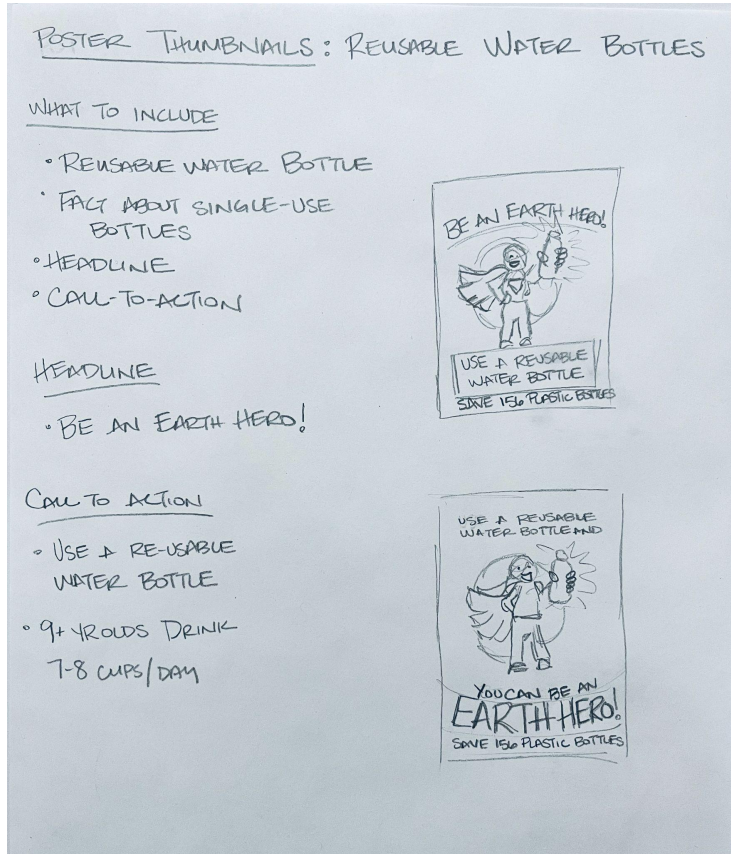 POSTER THUMBNAILS: REUSABLE WATER BOTTLES
WHAT TO INCLUDE
• REUSABLE WATER BOTTLE
• FACT ABOUT SINGLE-USE
BOTTLES
• HEADLINE
• CALL-TO-ACTION
HEADLINE
• BE AN EARTH HERO!
CALL TO ACTION
• USE A RE-USABLE
WATER BOTTLE
• 9+ YR OLDS DRINK
7-8 CUPS/DAY
BE AN EARTH HERO!
USE A REUSABLE
WATER BOTTLE
SAVE 156 PLASTIC BOTTLES
USE A REUSABLE
WATER BOTTLE AND
YOU CAN BE AN
EARTH HERO!
SAVE 156 PLASTIC BOTTLES